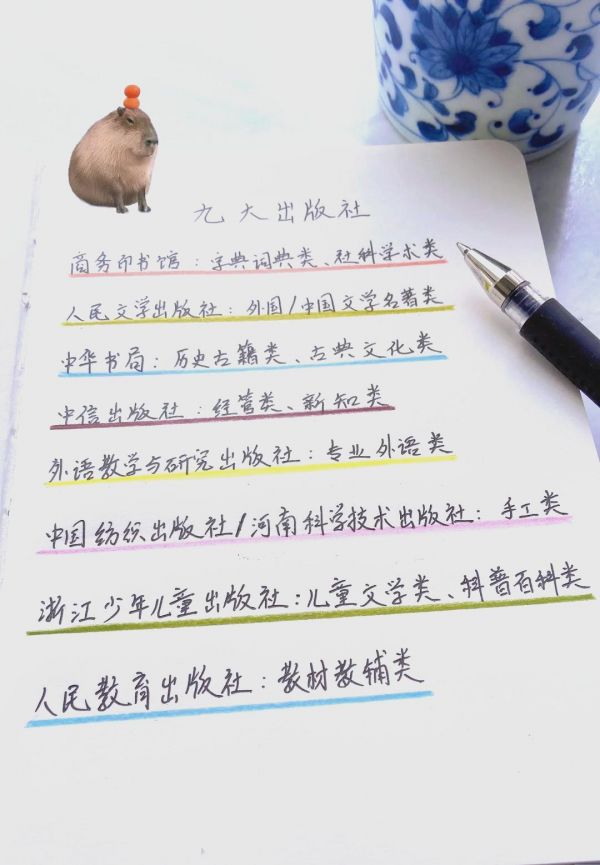 九大出版社
商务印书馆：字典词典类、社科学术类
人民文学出版社：外国/中国文学名著类
中华书局：历史古籍类、古典文化类
中信出版社：经管类、新知类
外语教学与研究出版社：专业外语类
中国纺织出版社/河南科学技术出版社：手工类
浙江少年儿童出版社：儿童文学类、科普百科类
人民教育出版社：教材教辅类